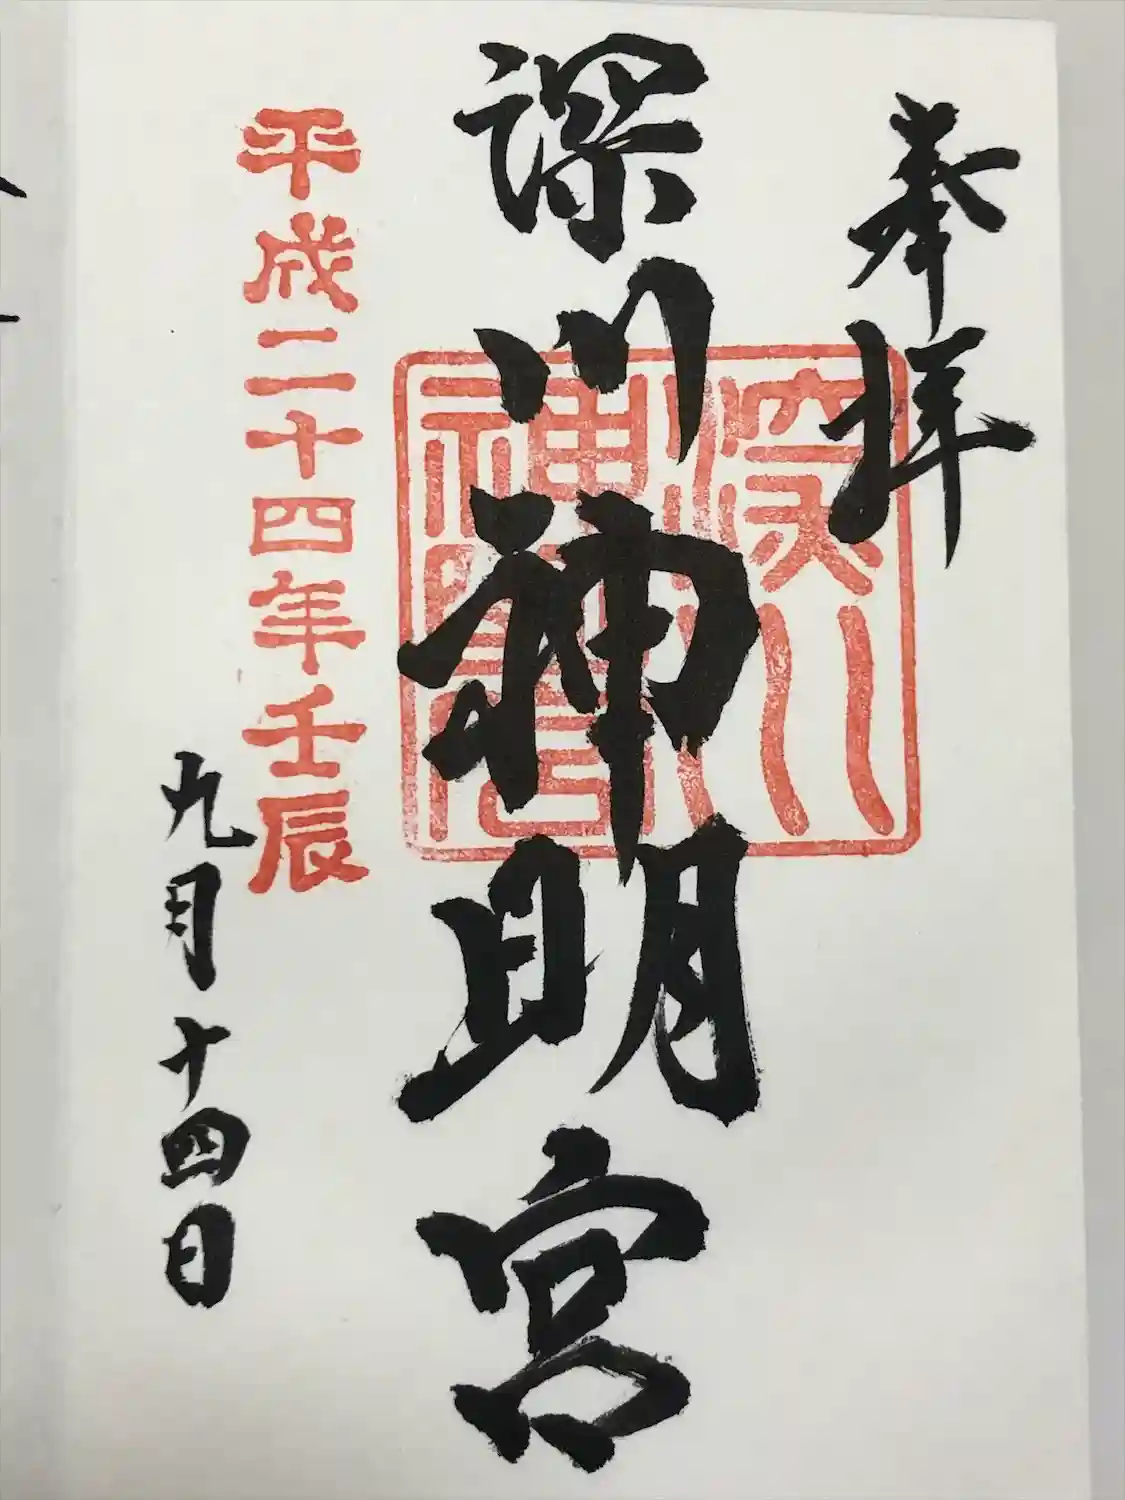 奉拝
深川神明宮
深川
神明宮
平成二十四年壬辰
九月十四日